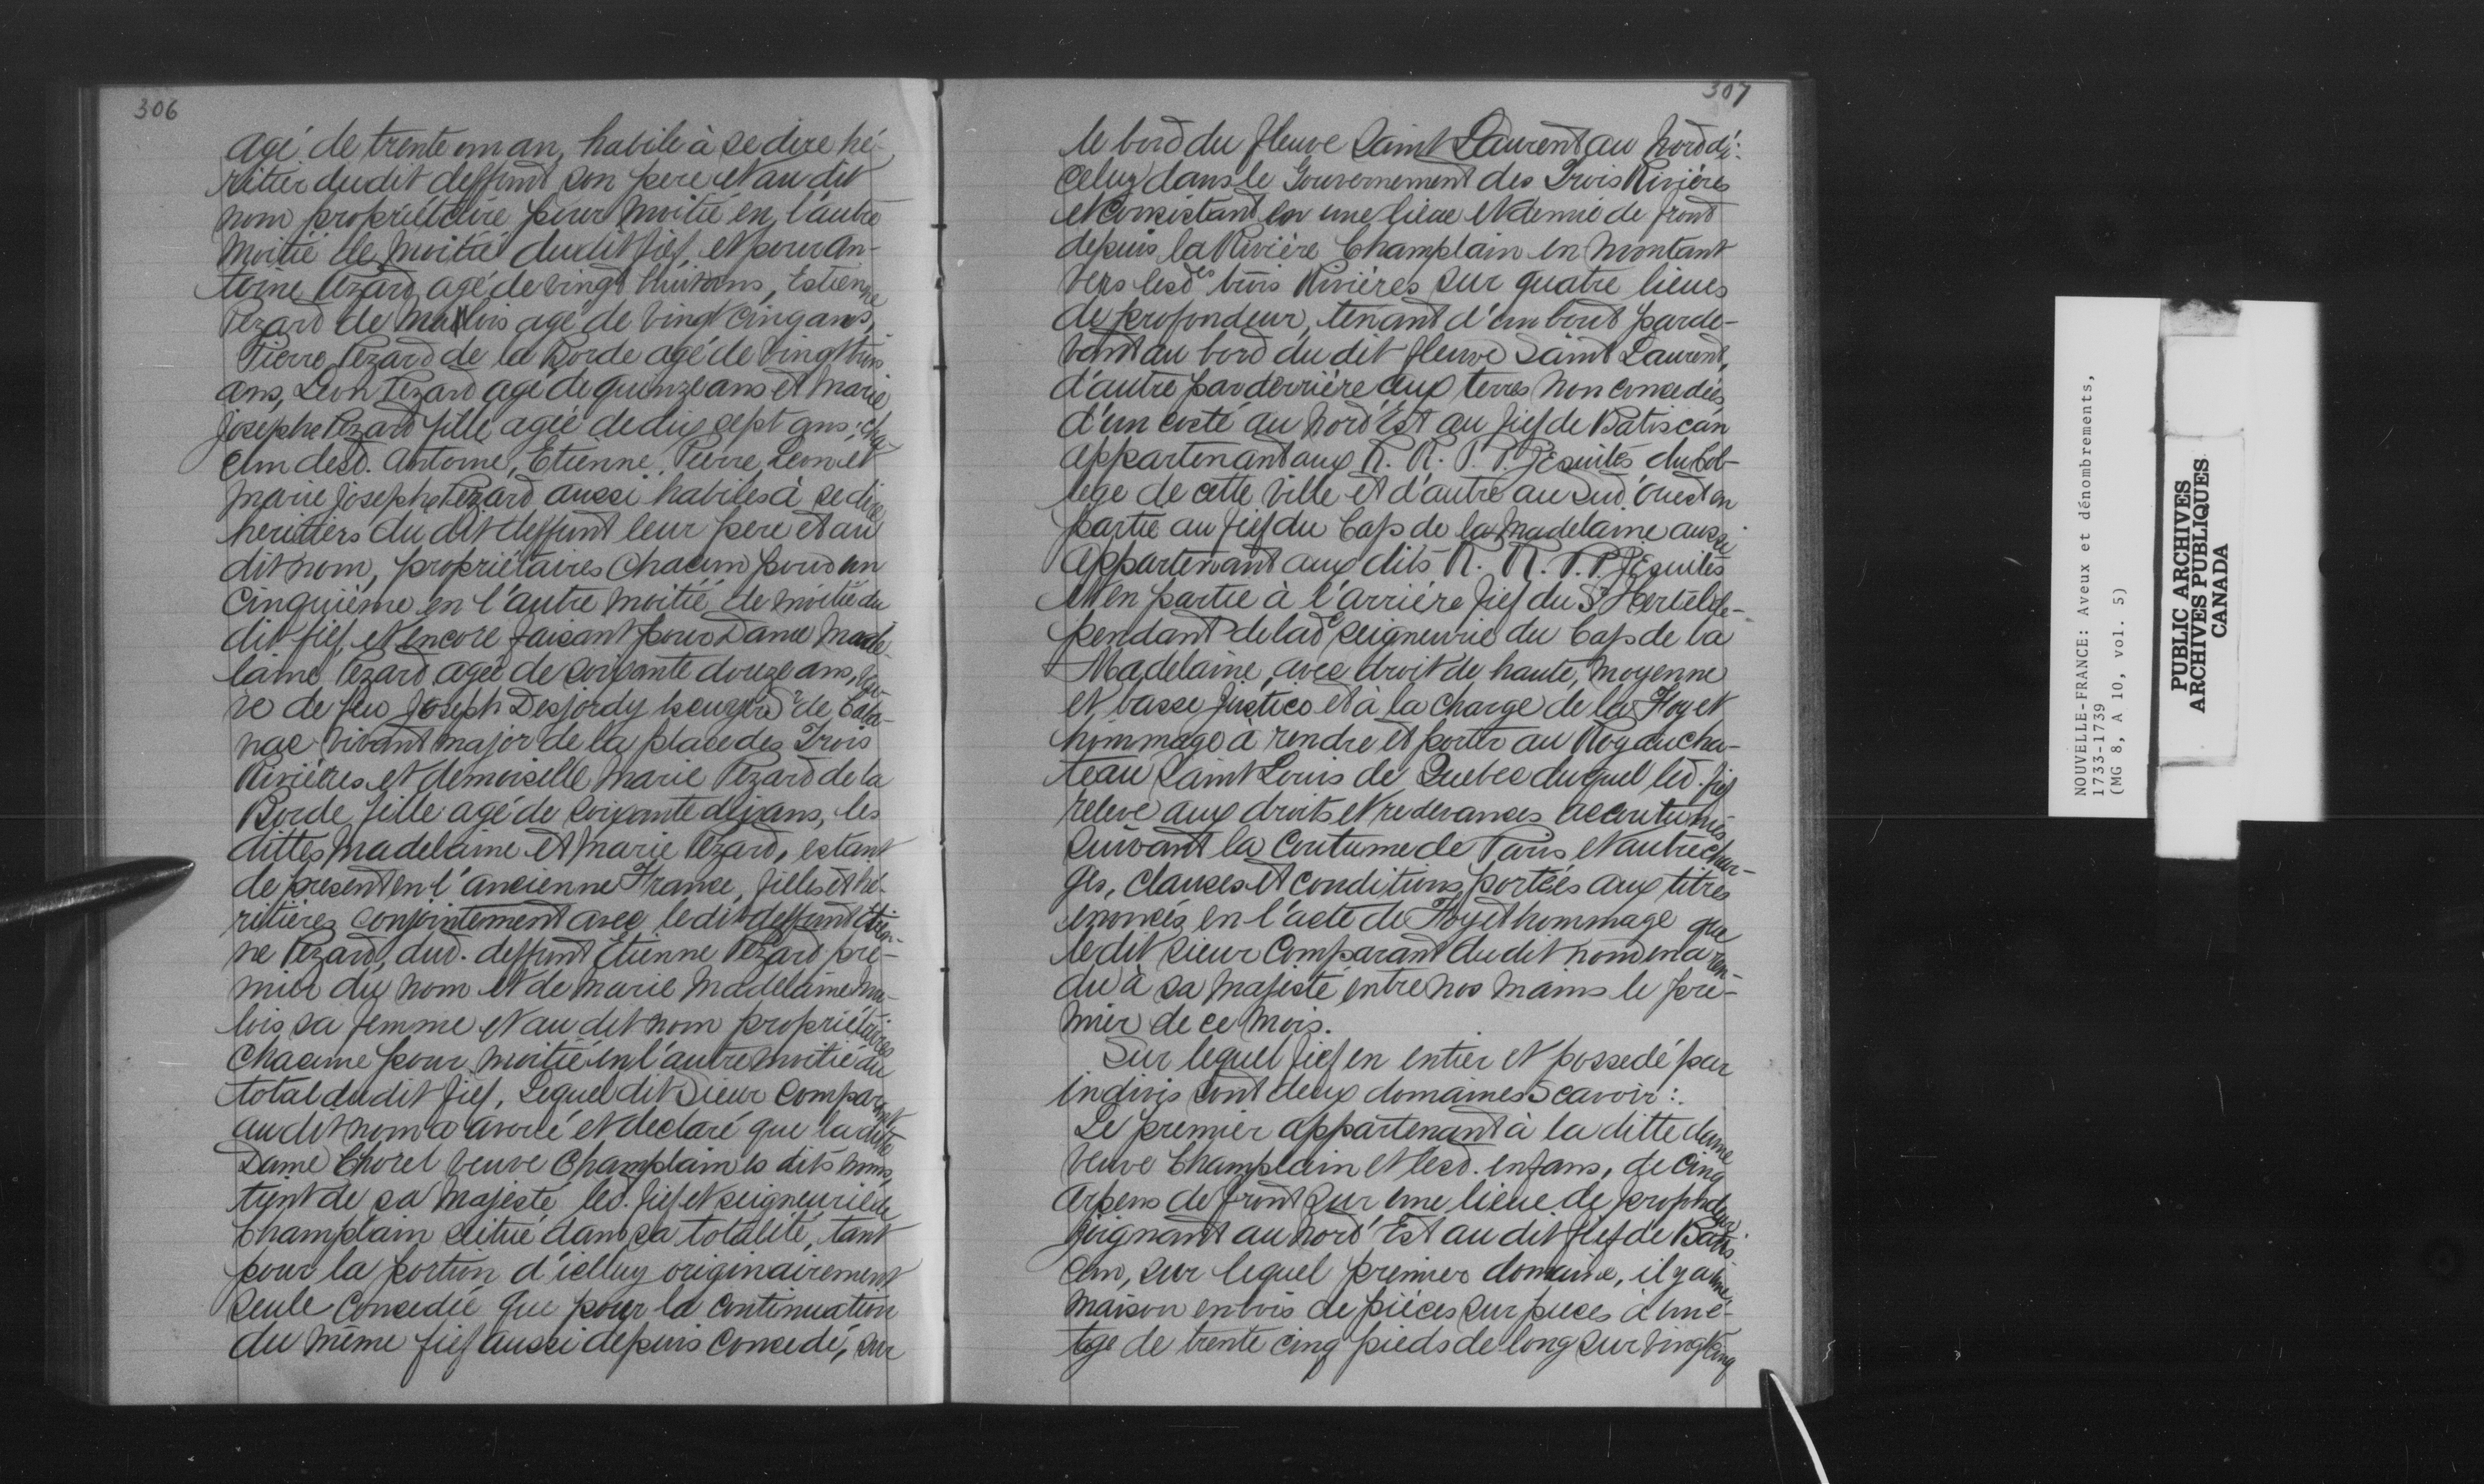 306
agé de trente un an, habile à se dire hé-
ritier du dit deffunt son pere et au dit
nom propriétaire pour moitié en l'autre
moitié de moitié du dit fief, et pour An-
toine Pezard agé de vingt huit ans, Estienne
Pezard de Mallois agé de vingt cinq ans,
Pierre Pezard de la Borde agé de vingt trois
ans, Leon Pezard agé de quinze ans et Marie
Josephe Pezard fille agée de dix sept ans; cha-
cun desd. Antoine, Etienne, Pierre, Leon et
Marie Josephe Pezard aussi habiles à se dire
heritiers du dit deffunt leur pere et au
dit nom, propriétaires chacun pour un
cinquième en l'autre moitié de moitié du
dit fief, et encore faisant pour Dame Made-
laine Pezard agée de soixante douze ans, veu-
ve de feu Joseph Desjordy Sr de Caba-
nac vivant major de la place des Trois
Rivières et demoiselle Marie Pezard de la
Borde fille agé de soixante dix ans, les
dittes Madelaine et Marie Pezard, estant
de present en l'ancienne France, filles et hé-
ritières conjointement avec le dit deffunt Etien-
ne Pezard, dud. deffunt Etienne Pezard pre-
mier du nom et de Marie Madelaine Mu-
lois sa femme et au dit nom propriétaires
chacune pour moitié en l'autre moitié du
total du dit fief, Lequel dit Sieur comparant
au dit nom a avoué et declaré que la ditte
Dame Chorel veuve Champlain es dits noms,
tient de sa Majesté led. fief et seigneurie de
Champlain scitué dans sa totalité, tant
pour la portion d'icelluy originairement
seule concedée que pour la continuation
du même fief aussi depuis concedé, sur
307
le bord du fleuve Saint Laurent au Nord di-
celuy dans le Gouvernement des Trois Rivières
et consistant en une lieue et demie de front
depuis la Rivière Champlain en montant
vers lesdes trois Rivières sur quatre lieues
de profondeur, tenant d'un bout parde-
vant au bord du dit fleuve Saint Laurent,
d'autre par derrière aux terres non concedées
d'un costé au Nord'Est au fief de Batiscan
appartenant aux R. R. P. P. Jésuites du Col-
lege de cette Ville et d'autre au Sud'Ouest en
partie au fief du Cap de la Madelaine aussi
appartenant aux dits R. R. P. P. Jésuites
et en partie à l'arrière fief du Sr Hertel de-
pendant de lade seigneurie du Cap de la
Madelaine, avec droit de haute, moyenne
et basse Justice et à la charge de la Foy et
hommage à rendre et porter au Roy au cha-
teau Saint Louis de Quebec duquel led. fief
releve aux droits et redevances accoutumés
suivant la Coutume de Paris et autre char-
ges, clauses et conditions portées aux titres
enoncés en l'acte de Foy et hommage que
le dit sieur comparant du dit nom en a ren-
du à sa Majesté entre nos mains le pre-
mier de ce Mois.
Sur lequel fief en entier et possedé par
indivis sont deux domaines scavoir :.
Le premier appartenant à la ditte dame
veuve Champlain et lesd. enfans, de cinq
arpens de front sur une lieue de profondeur
joignant au Nord'Est au dit fief de Batis-
can, sur lequel premier domaine, il y a une
maison en bois de pièces sur pieces à un é-
tage de trente cinq pieds de long sur vingt cinq
NOUVELLE-FRANCE: Aveux et dénombrements,
1733-1739
(MG 8, A 10, vol. 5)
PUBLIC ARCHIVES
ARCHIVES PUBLIQUES
CANADA